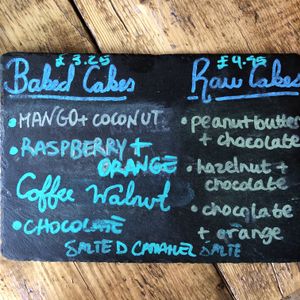 £ 3.25
Baked Cakes
• MANGO + COCONUT
• RASPBERRY +
ORANGE
Coffee Walnut
• CHOCOLATE
SALTED CARAMEL
£ 4.45
Raw Cakes
• peanut butter
+ chocolate
• hazelnut +
chocolate
• chocolate
+ orange
SALTE